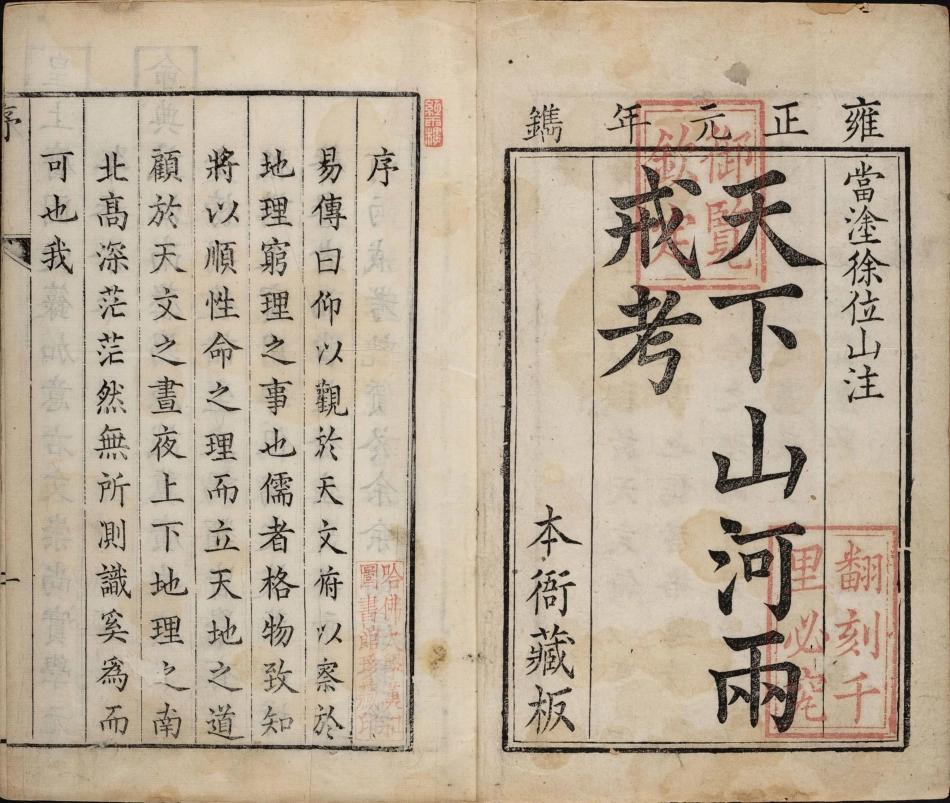 雍正元年鐫
當塗徐位山注
天下山河兩
戒考
本衙藏板
御覽
欽定
翻刻千
里必究
序
易傳曰仰以觀於天文府以察於
地理窮理之事也儒者格物致知
將以順性命之理而立天地之道
顧於天文之晝夜上下地理之南
北高深茫茫然無所測識奚爲而
可也我
序
一
哈佛大學漢和
圖書館珍藏印